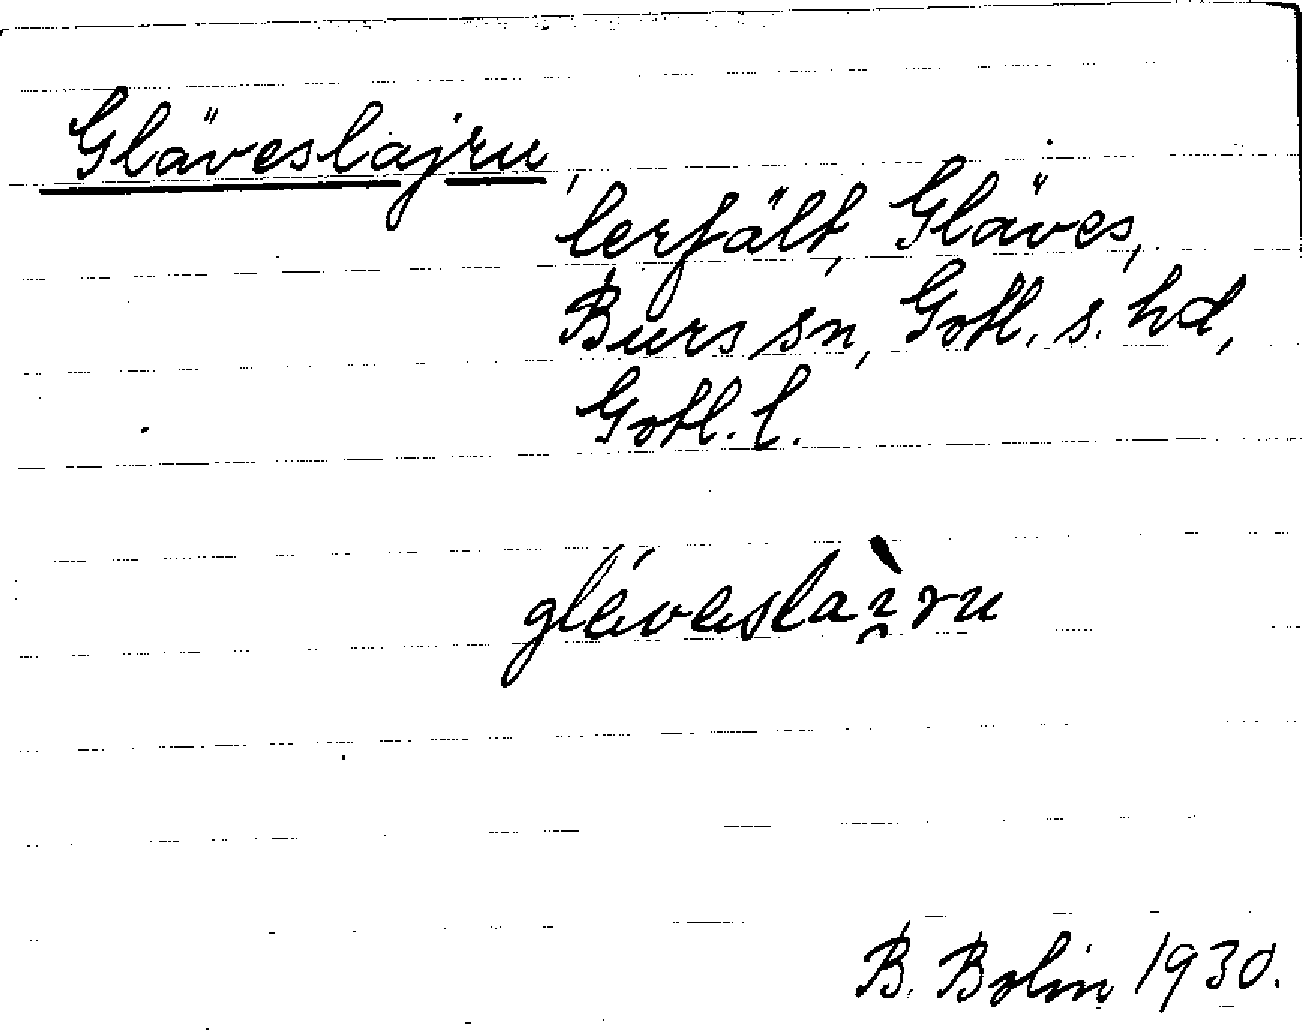 Gläveslajru,
lerfält, Gläves,
Burs sn, Gotl. s. hd,
Gotl. l.
glévaslaı̨̀ru
B. Bolin 1930.